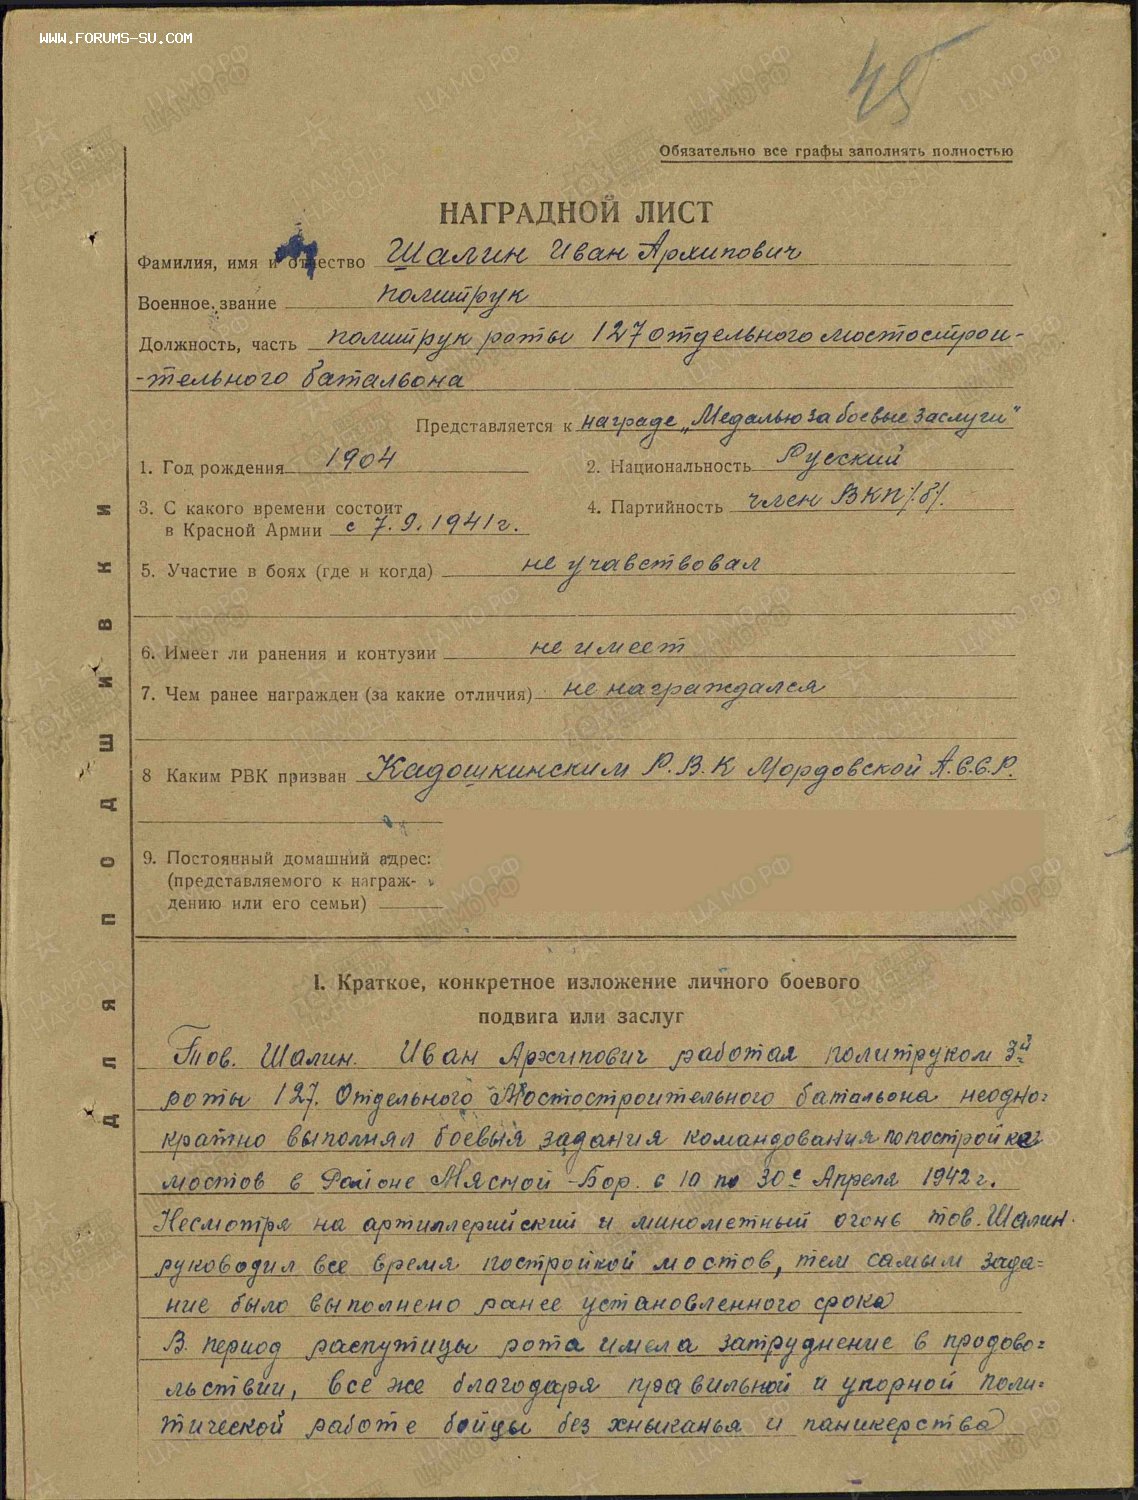 WWW.FORUMS-SU.COM
45
Обязательно все графы заполнять полностью
НАГРАДНОЙ ЛИСТ
Фамилия, имя и отчество Шалин Иван Архипович
Военное звание политрук
Должность, часть политрук роты 127 отдельного мостострои-
-тельного батальона
Представляется к награде „Медалью за боевые заслуги"
1. Год рождения 1904
2. Национальность Русский
3. С какого времени состоит
в Красной Армии с 7.9.1941г.
4. Партийность член ВКП/б/.
5. Участие в боях (где и когда) не учавствовал
6. Имеет ли ранения и контузии не имеет
7. Чем ранее награжден (за какие отличия) не награждался
8 Каким РВК призван Кадошкинским Р.В.К Мордовской А.С.С.Р.
9. Постоянный домашний адрес:
(представляемого к награж-
дению или его семьи)
ДЛЯ ПОДШИВКИ
I. Краткое, конкретное изложение личного боевого
подвига или заслуг
Тов. Шалин. Иван Архипович работая политруком 3й
роты 127. Отдельного Мостостроительного батальона неодно=
кратно выполнял боевыя задания командования по постройке
мостов в Районе Мясной-Бор. с 10 по 30е Апреля 1942г.
Несмотря на артиллерийский и минометный огонь тов. Шалин.
руководил все время постройкой мостов, тем самым зада=
ние было выполнено ранее установленного срока
В период распутицы рота имела затруднение в продово=
льствии, все же благодаря правильной и упорной поли=
тической работе бойцы без хныканья и паникерства